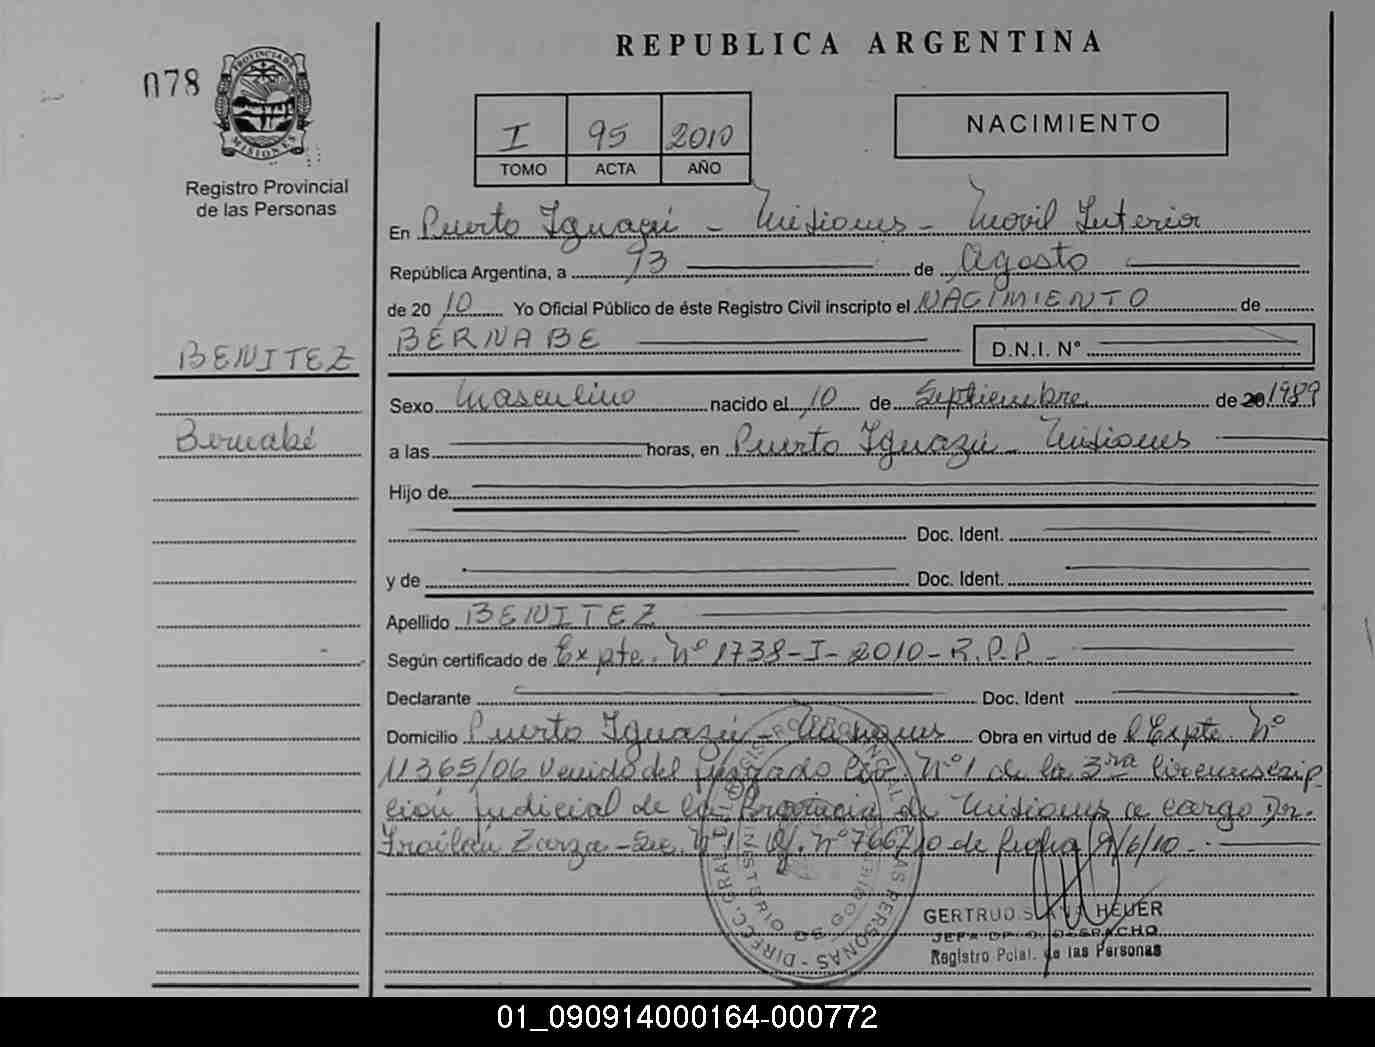 REPUBLICA ARGENTINA
078
PROVINCIA DE
MISIONES
Registro Provincial
de las Personas
I 95 2010
TOMO ACTA AÑO
NACIMIENTO
En Puerto Iguazú - Misiones - Movil Interior
República Argentina, a 13 de Agosto
de 20 10 Yo Oficial Público de éste Registro Civil inscripto el NACIMIENTO de
BERNABE D.N.I. N°
BENITEZ
Bernabé
Sexo Masculino nacido el 10 de Septiembre de 20 1989
a las horas, en Puerto Iguazú - Misiones
Hijo de
Doc. Ident.
y de Doc. Ident.
Apellido BENITEZ
Según certificado de Expte. N° 1738-I-2010-R.P.P.
Declarante Doc. Ident
Domicilio Puerto Iguazú - Misiones Obra en virtud de l Expte N°
11365/06 venido del Juzgado Civ. N°1 de la 3ra circunscrip-
ción judicial de la Provincia de Misiones a cargo Dr.
Froilán Zarza - Sec. N°1 Of. N° 766/10 de fecha 9/6/10.
DIRECC. GRAL. DEL REGISTRO PROVINCIAL DE LAS PERSONAS
MINISTERIO DE GOBIERNO
HEUER
JEFA DPTO. DESPACHO
Registro Pcial. de las Personas
01_090914000164-000772